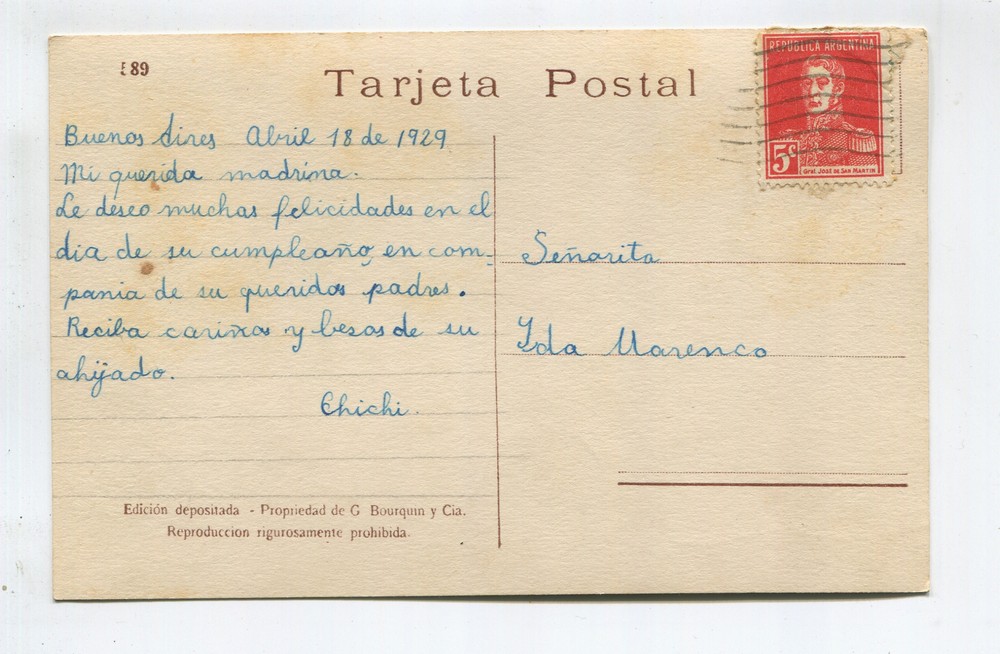 589
Tarjeta Postal
REPUBLICA ARGENTINA
5c
Gral. JOSÉ DE SAN MARTIN
Buenos Aires Abril 18 de 1929
Mi querida madrina.
Le deseo muchas felicidades en el
dia de su cumpleaño, en com-
pania de su queridos padres.
Reciba cariños y besos de su
ahijado.
Chichi.
Señorita
Ida Marenco
Edición depositada - Propriedad de G Bourquin y Cia.
Reproduccion rigurosamente prohibida.